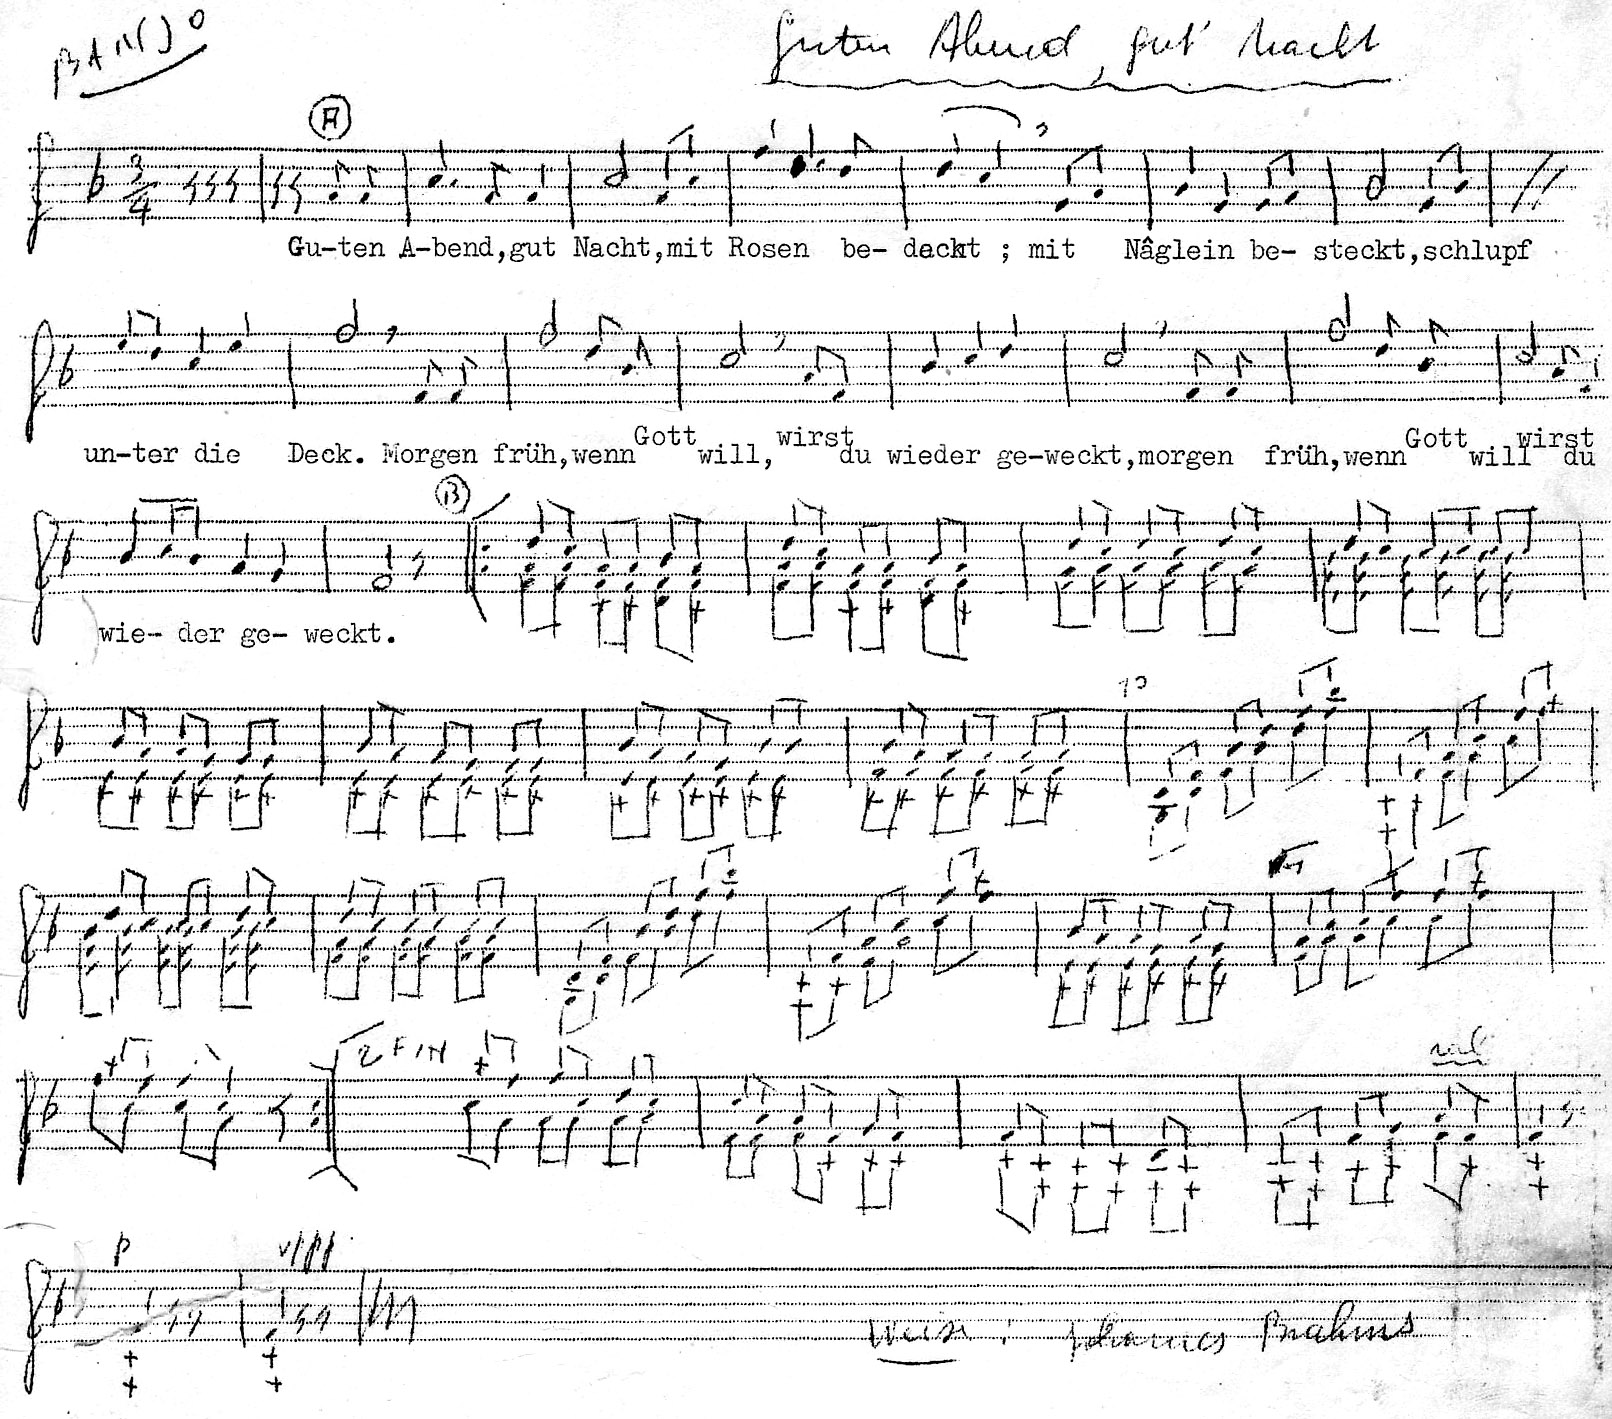 BANJO
Guten Abend, gut' Nacht
A
3/4
Gu-ten A-bend,gut Nacht,mit Rosen be- deckt ; mit Nâglein be- steckt,schlupf
un-ter die Deck. Morgen früh,wenn Gott will, wirst du wieder ge-weckt,morgen früh,wenn Gott will wirst du
B
wie- der ge- weckt.
2 FIN
p
Weise : Johannes Brahms